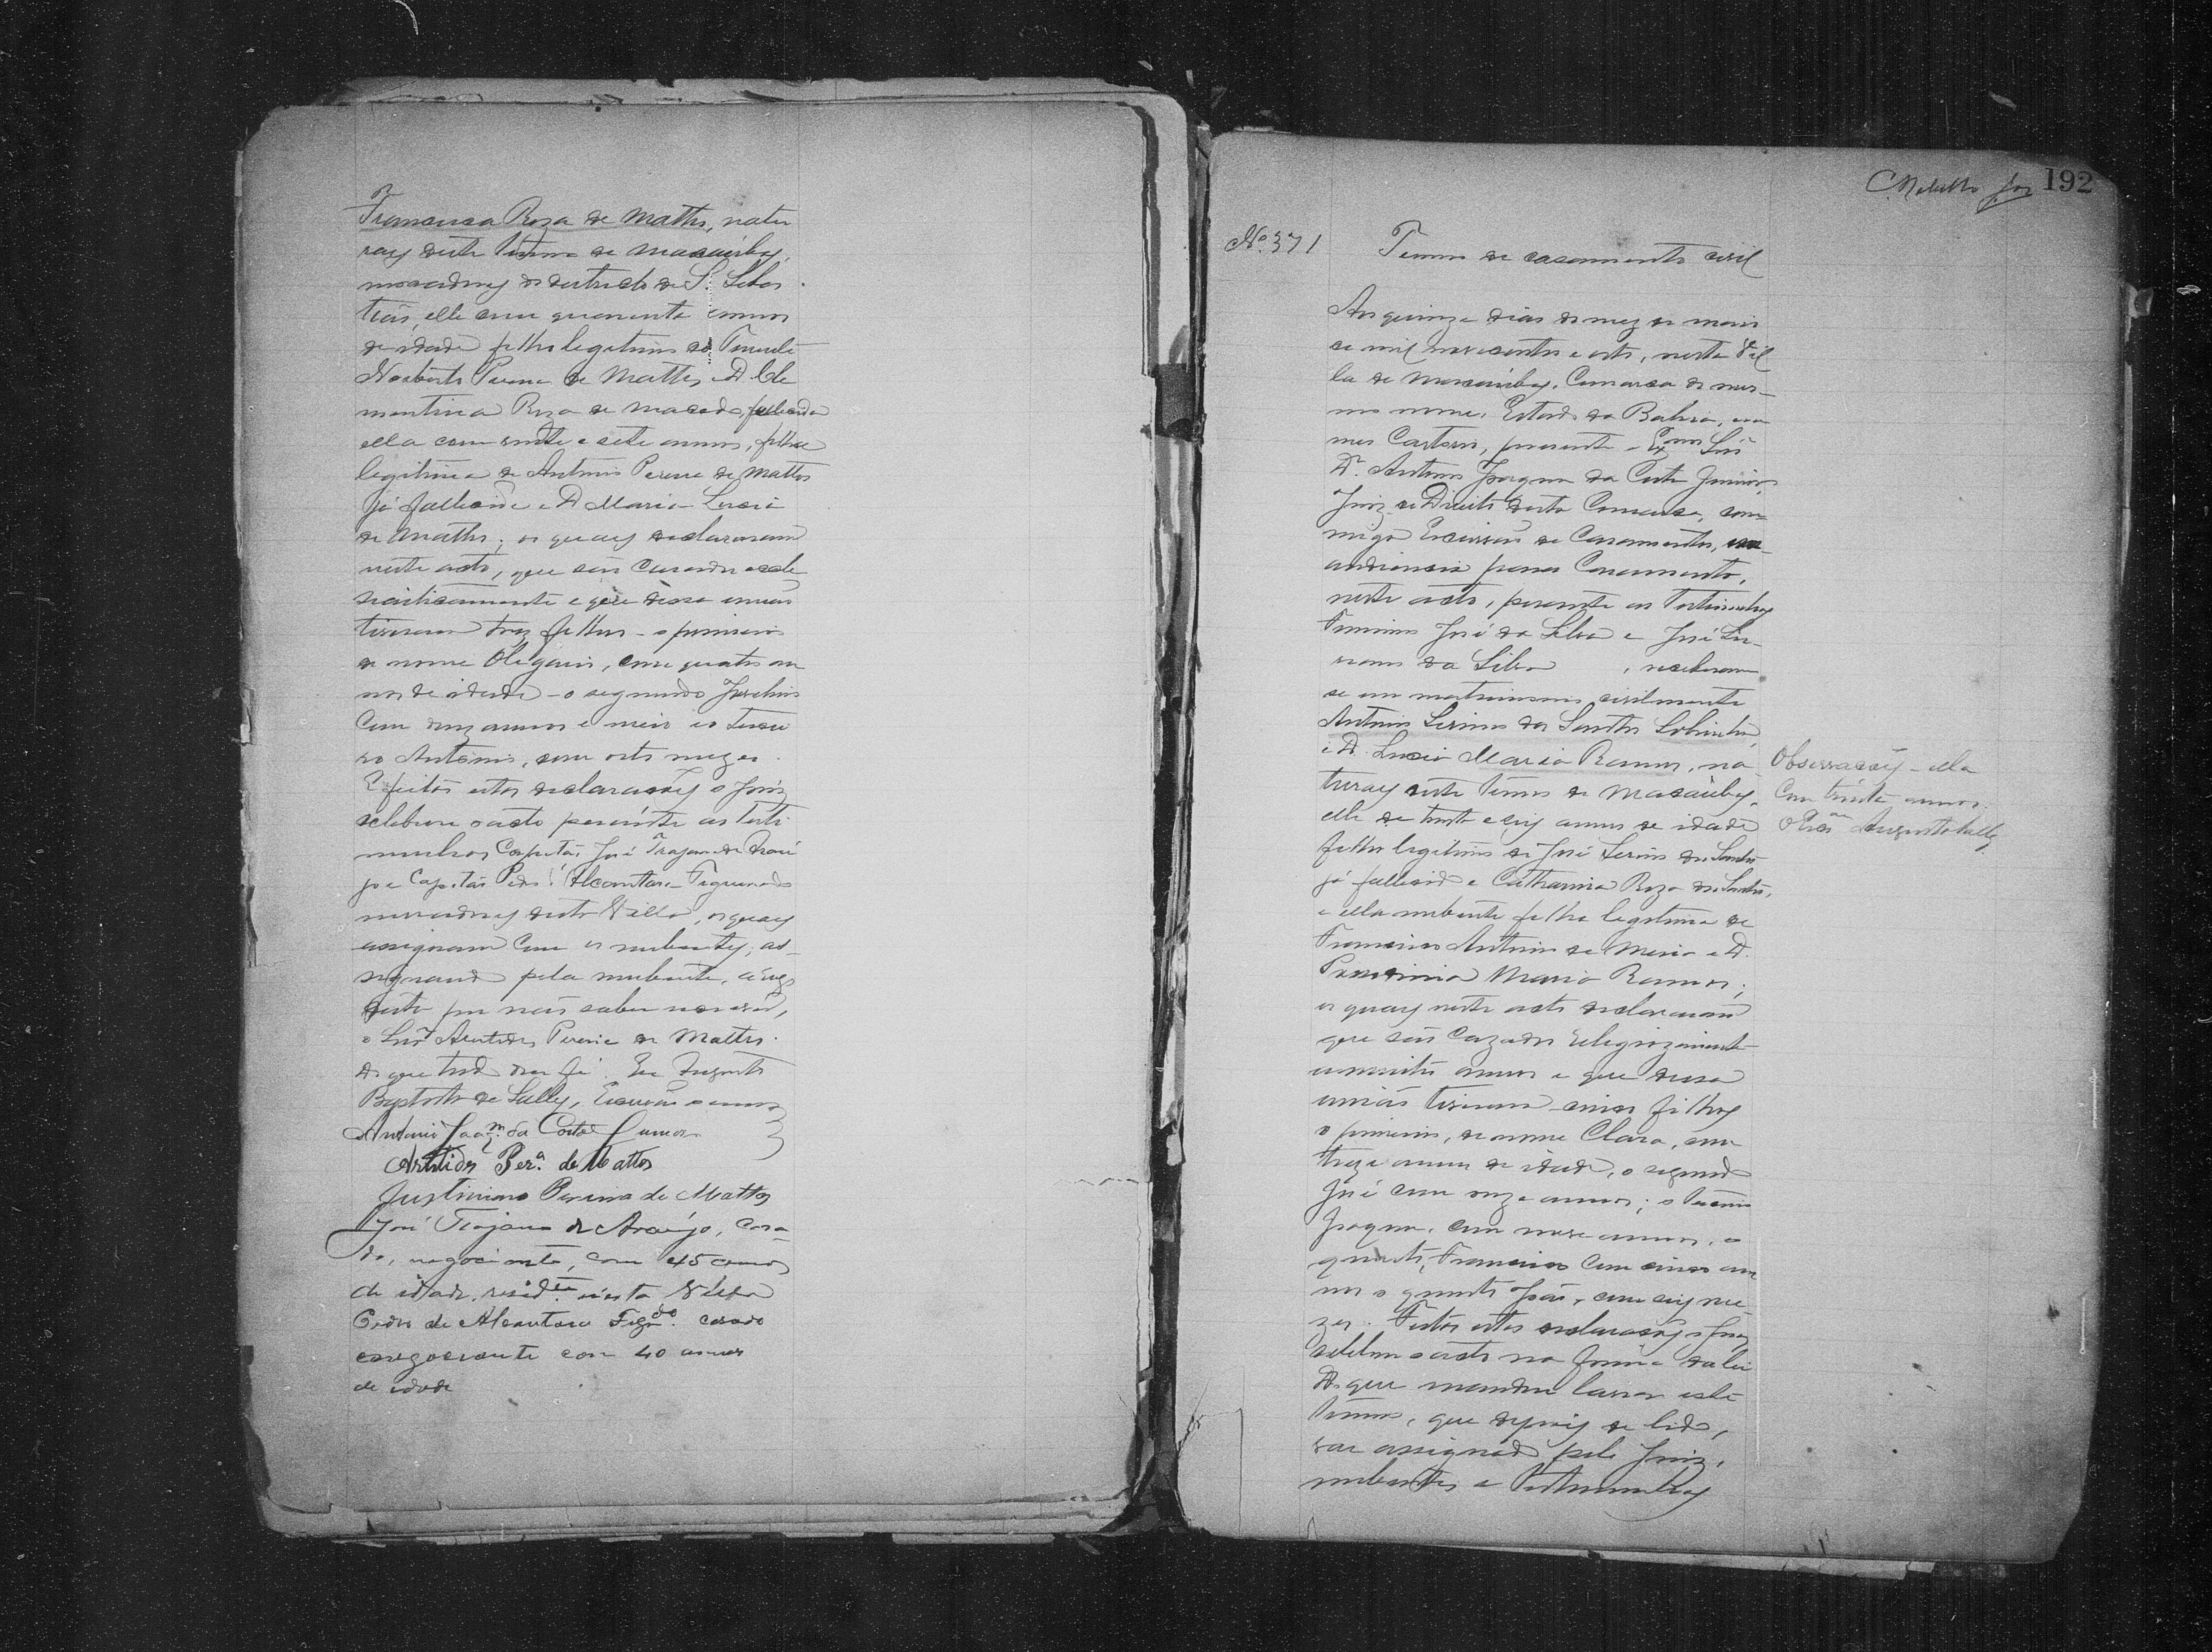 Francisca Roza de Mattos, natu
raes deste Termo de Macaúbas,
moradores no districto de S. Sebas
tião, elle com quarenta annos
de idade filho legitimo do Tenente
Norberto Pereira de Mattos e D. Cle
mentina Roza de Macedo, fallecida
ella com vinte e sete annos, filha
legitima de Antonio Pereira de Mattos
já fallecido e D. Maria Lucia
de Mattos; os quaes declararam
neste acto, que são casados eccle
siasticamente e que dessa união
tiveram trez filhos - o primeiro
de nome Olegario, com quatro an
nos de idade - o segundo Juvelino
com douz annos e meio e o tercei
ro Antonio, com oito mezes.
E feitas estas declarações o Juiz
celebrou o acto perante as teste
munhas Capitão José Trajano de Arau
jo e Capitão Pedro Alcantara Figueredo
moradores nesta Villa, os quaes
assignaram com os nubentes, as-
signando pela nubente, a rogo
desta por não saber escrever,
o Snr Aristides Pereira de Mattos.
Do que tudo dou fé. Eu Augusto
Baptista de Lelly, Escrivão o escrevi
Antonio Joaqm. da Costa Junior
Aristides Per.a de Mattos
Justiniano Pereira de Mattos
José Trajano de Araújo, casa-
do, negociante, com 45 annos
de idade, resid.te nesta Villa
Pedro de Alcantara Figrdo. casado
negociante com 40 annos
de idade
192
No. 371
Termo de casamento civil
Aos quinze dias do mez de maio
de mil novecentos e oito, nesta Vil
la de Macaúbas, Comarca do mes-
mo nome, Estado da Bahia, em
meu Cartorio, presente o Exmo Snr
Dr. Antonio Joaquim da Costa Junior,
Juiz de Direito desta Comarca, com-
migo Escrivão de Casamentos, em
audiencia para Casamento,
neste acto, perante as testemunhas
Firmino José da Silva e José
da Silva, receberam
se em matrimonio civilmente
Antonio Lirino dos Santos Sobrinho,
e D. Lucia Maria Ramos, na
turaes deste Termo de Macaúbas,
elle de trinta e seis annos de idade
filho legitimo de José Lirino dos Santos
já fallecido e Catharina Roza dos Santos,
e ella nubente filha legitima de
Francisco Antonio de Meira e D.
Maria Ramos;
os quaes neste acto declararam
que são cazados religiozamente
a muitos annos e que dessa
união tiveram cinco filhos
o primeiro, de nome Clara, com
treze annos de idade, o segundo
José com onze annos; o terceiro
Joaquim, com nove annos, o
quarto, Francisco com cinco an
nos o quinto João, com seis me-
zes. Feitas estas declarações o Juiz
celebrou o acto na forma da lei
Do que mandou lavrar este
termo, que depois de lido,
vae assignado pelo Juiz,
nubentes e testemunhas
Observação - ella
com trinta annos.
O Escam Augusto Lelly